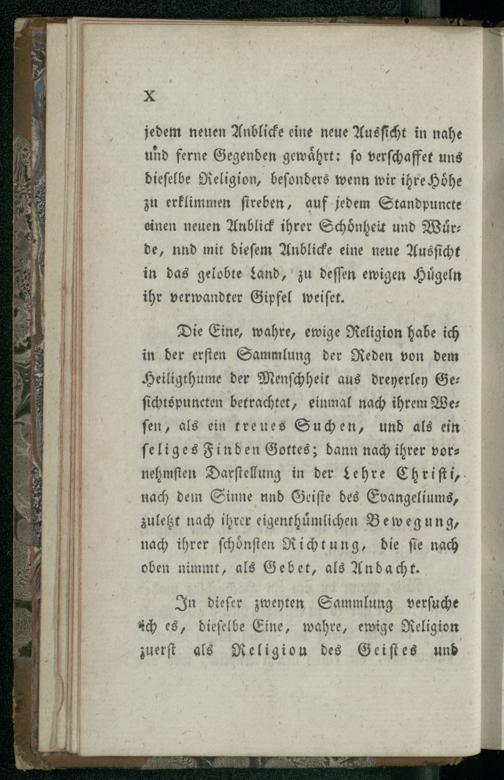 X
jedem neuen Anblicke eine neue Aussicht in nahe
und ferne Gegenden gewährt: so verschaffet uns
dieselbe Religion, besonders wenn wir ihre Höhe
zu erklimmen streben, auf jedem Standpuncte
einen neuen Anblick ihrer Schönheit und Wür-
de, nnd mit diesem Anblicke eine neue Aussicht
in das gelobte Land, zu dessen ewigen Hügeln
ihr verwandter Gipfel weiset.
Die Eine, wahre, ewige Religion habe ich
in der ersten Sammlung der Reden von dem
Heiligthume der Menschheit aus dreyerley Ge-
sichtspuncten betrachtet, einmal nach ihrem We-
sen, als ein treues Suchen, und als ein
seliges Finden Gottes; dann nach ihrer vor-
nehmsten Darstellung in der Lehre Christi,
nach dem Sinne nnd Geiste des Evangeliums,
zuletzt nach ihrer eigenthümlichen Bewegung,
nach ihrer schönsten Richtung, die sie nach
oben nimmt, als Gebet, als Andacht.
In dieser zweyten Sammlung versuche
ich es, dieselbe Eine, wahre, ewige Religion
zuerst als Religion des Geistes und